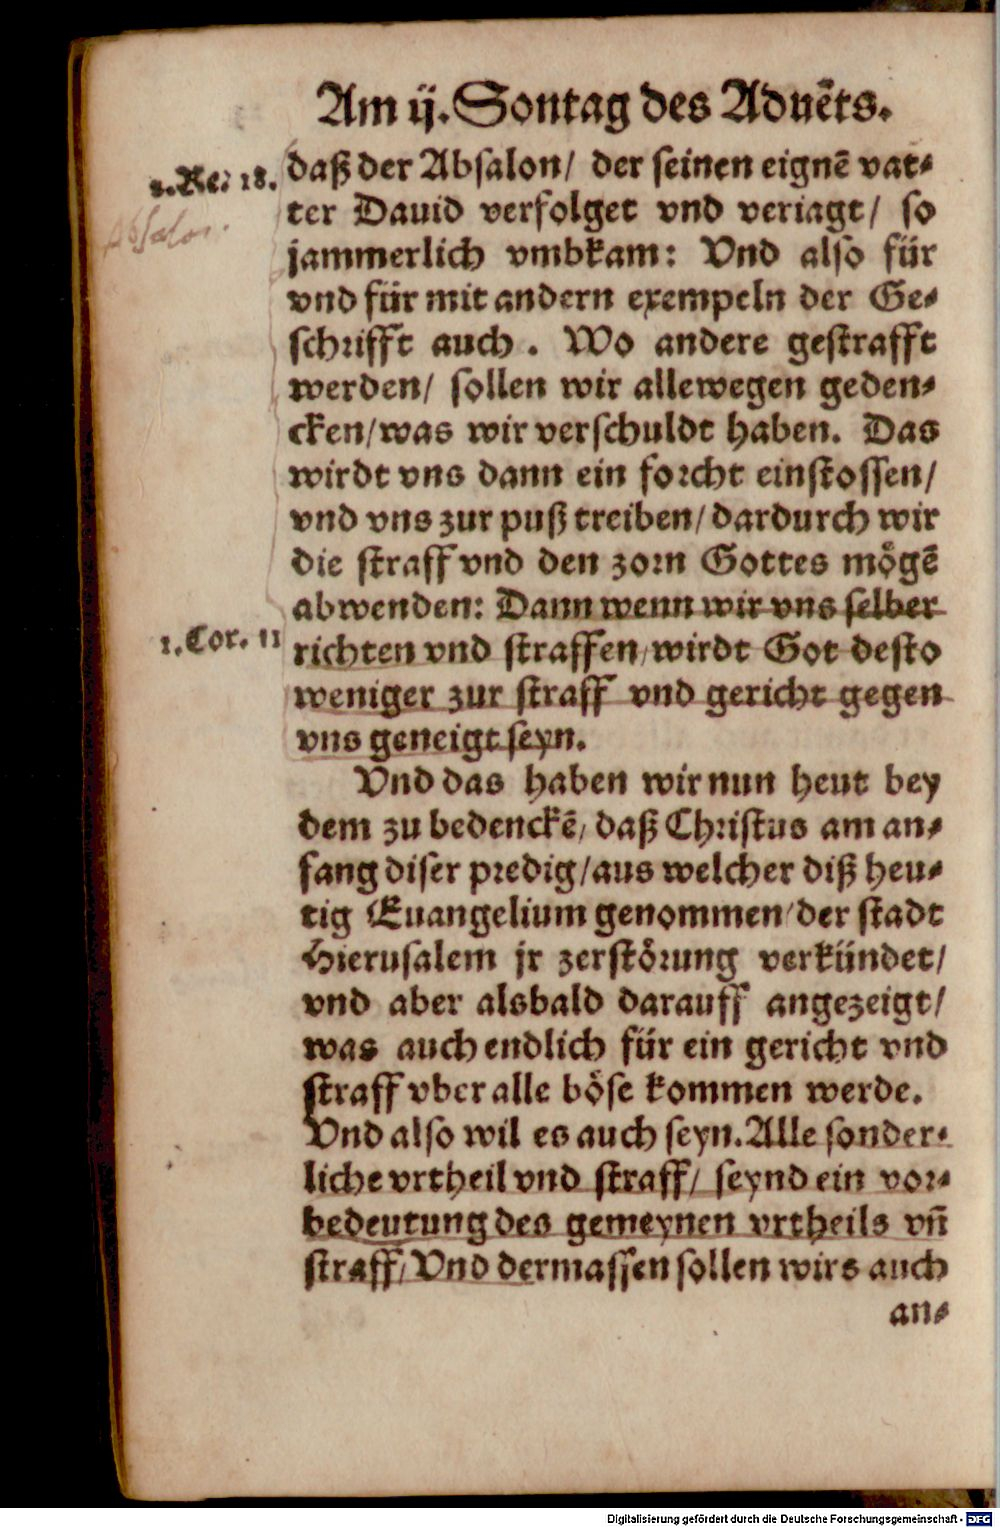 Am ij. Sontag des Aduẽts.
2. Re: 18.
Absalon.
daß der Absalon/ der seinen eignẽ vat⸗
ter Dauid verfolget vnd veriagt/ so
jammerlich vmbkam: Vnd also für
vnd für mit andern exempeln der Ge⸗
schrifft auch. Wo andere gestrafft
werden/ sollen wir allewegen geden⸗
cken/ was wir verschuldt haben. Das
wirdt vns dann ein forcht einstossen/
vnd vns zur puß treiben/ dardurch wir
die straff vnd den zorn Gottes mögẽ
abwenden: Dann wenn wir vns selber
1. Cor. 11
richten vnd straffen/ wirdt Got desto
weniger zur straff vnd gericht gegen
vns geneigt seyn.
Vnd das haben wir nun heut bey
dem zu bedenckẽ/ daß Christus am an⸗
fang diser predig/ aus welcher diß heu⸗
tig Euangelium genommen/ der stadt
Hierusalem jr zerstörung verkündet/
vnd aber alsbald darauff angezeigt/
was auch endlich für ein gericht vnd
straff vber alle böse kommen werde.
Vnd also wil es auch seyn. Alle sonder⸗
liche vrtheil vnd straff/ seynd ein vor⸗
bedeutung des gemeynen vrtheils vñ
straff/ Vnd dermassen sollen wirs auch
an⸗
Digitalisierung gefördert durch die Deutsche Forschungsgemeinschaft - DFG